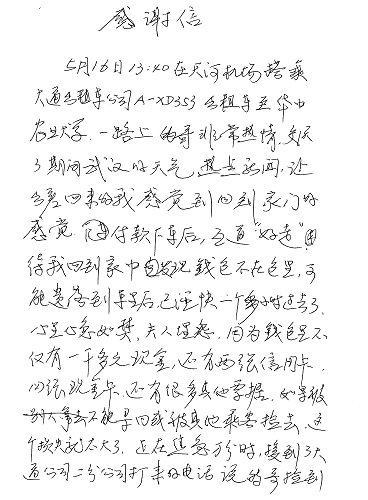 感谢信
5月16日13:40在天河机场搭乘
大通出租车公司A-XD353出租车至华中
农业大学。一路上的哥非常热情,
了期间武汉的天气,热点新闻,让
出差回来的我感觉到回到家门的
感觉。付款下车后,互道"好走"
我回到家中发现钱包不在包里,可
能遗落到车上后,已经快一个多小时过去了,
心里心急如焚,夫人埋怨,因为钱包里不
仅有一千多元现金,还有两张信用卡,
四张现金卡,还有很多其他票据,如果被
别人拿去不能寻回或被其他乘客捡去,这
个损失就太大了,正在焦急万分时,接到了大
通公司二分公司打来的电话说的哥捡到